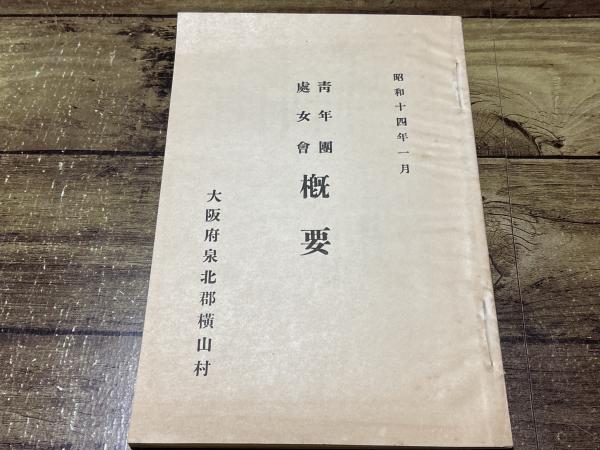 昭和十四年一月
靑年團
處女會
槪要
大阪府泉北郡橫山村